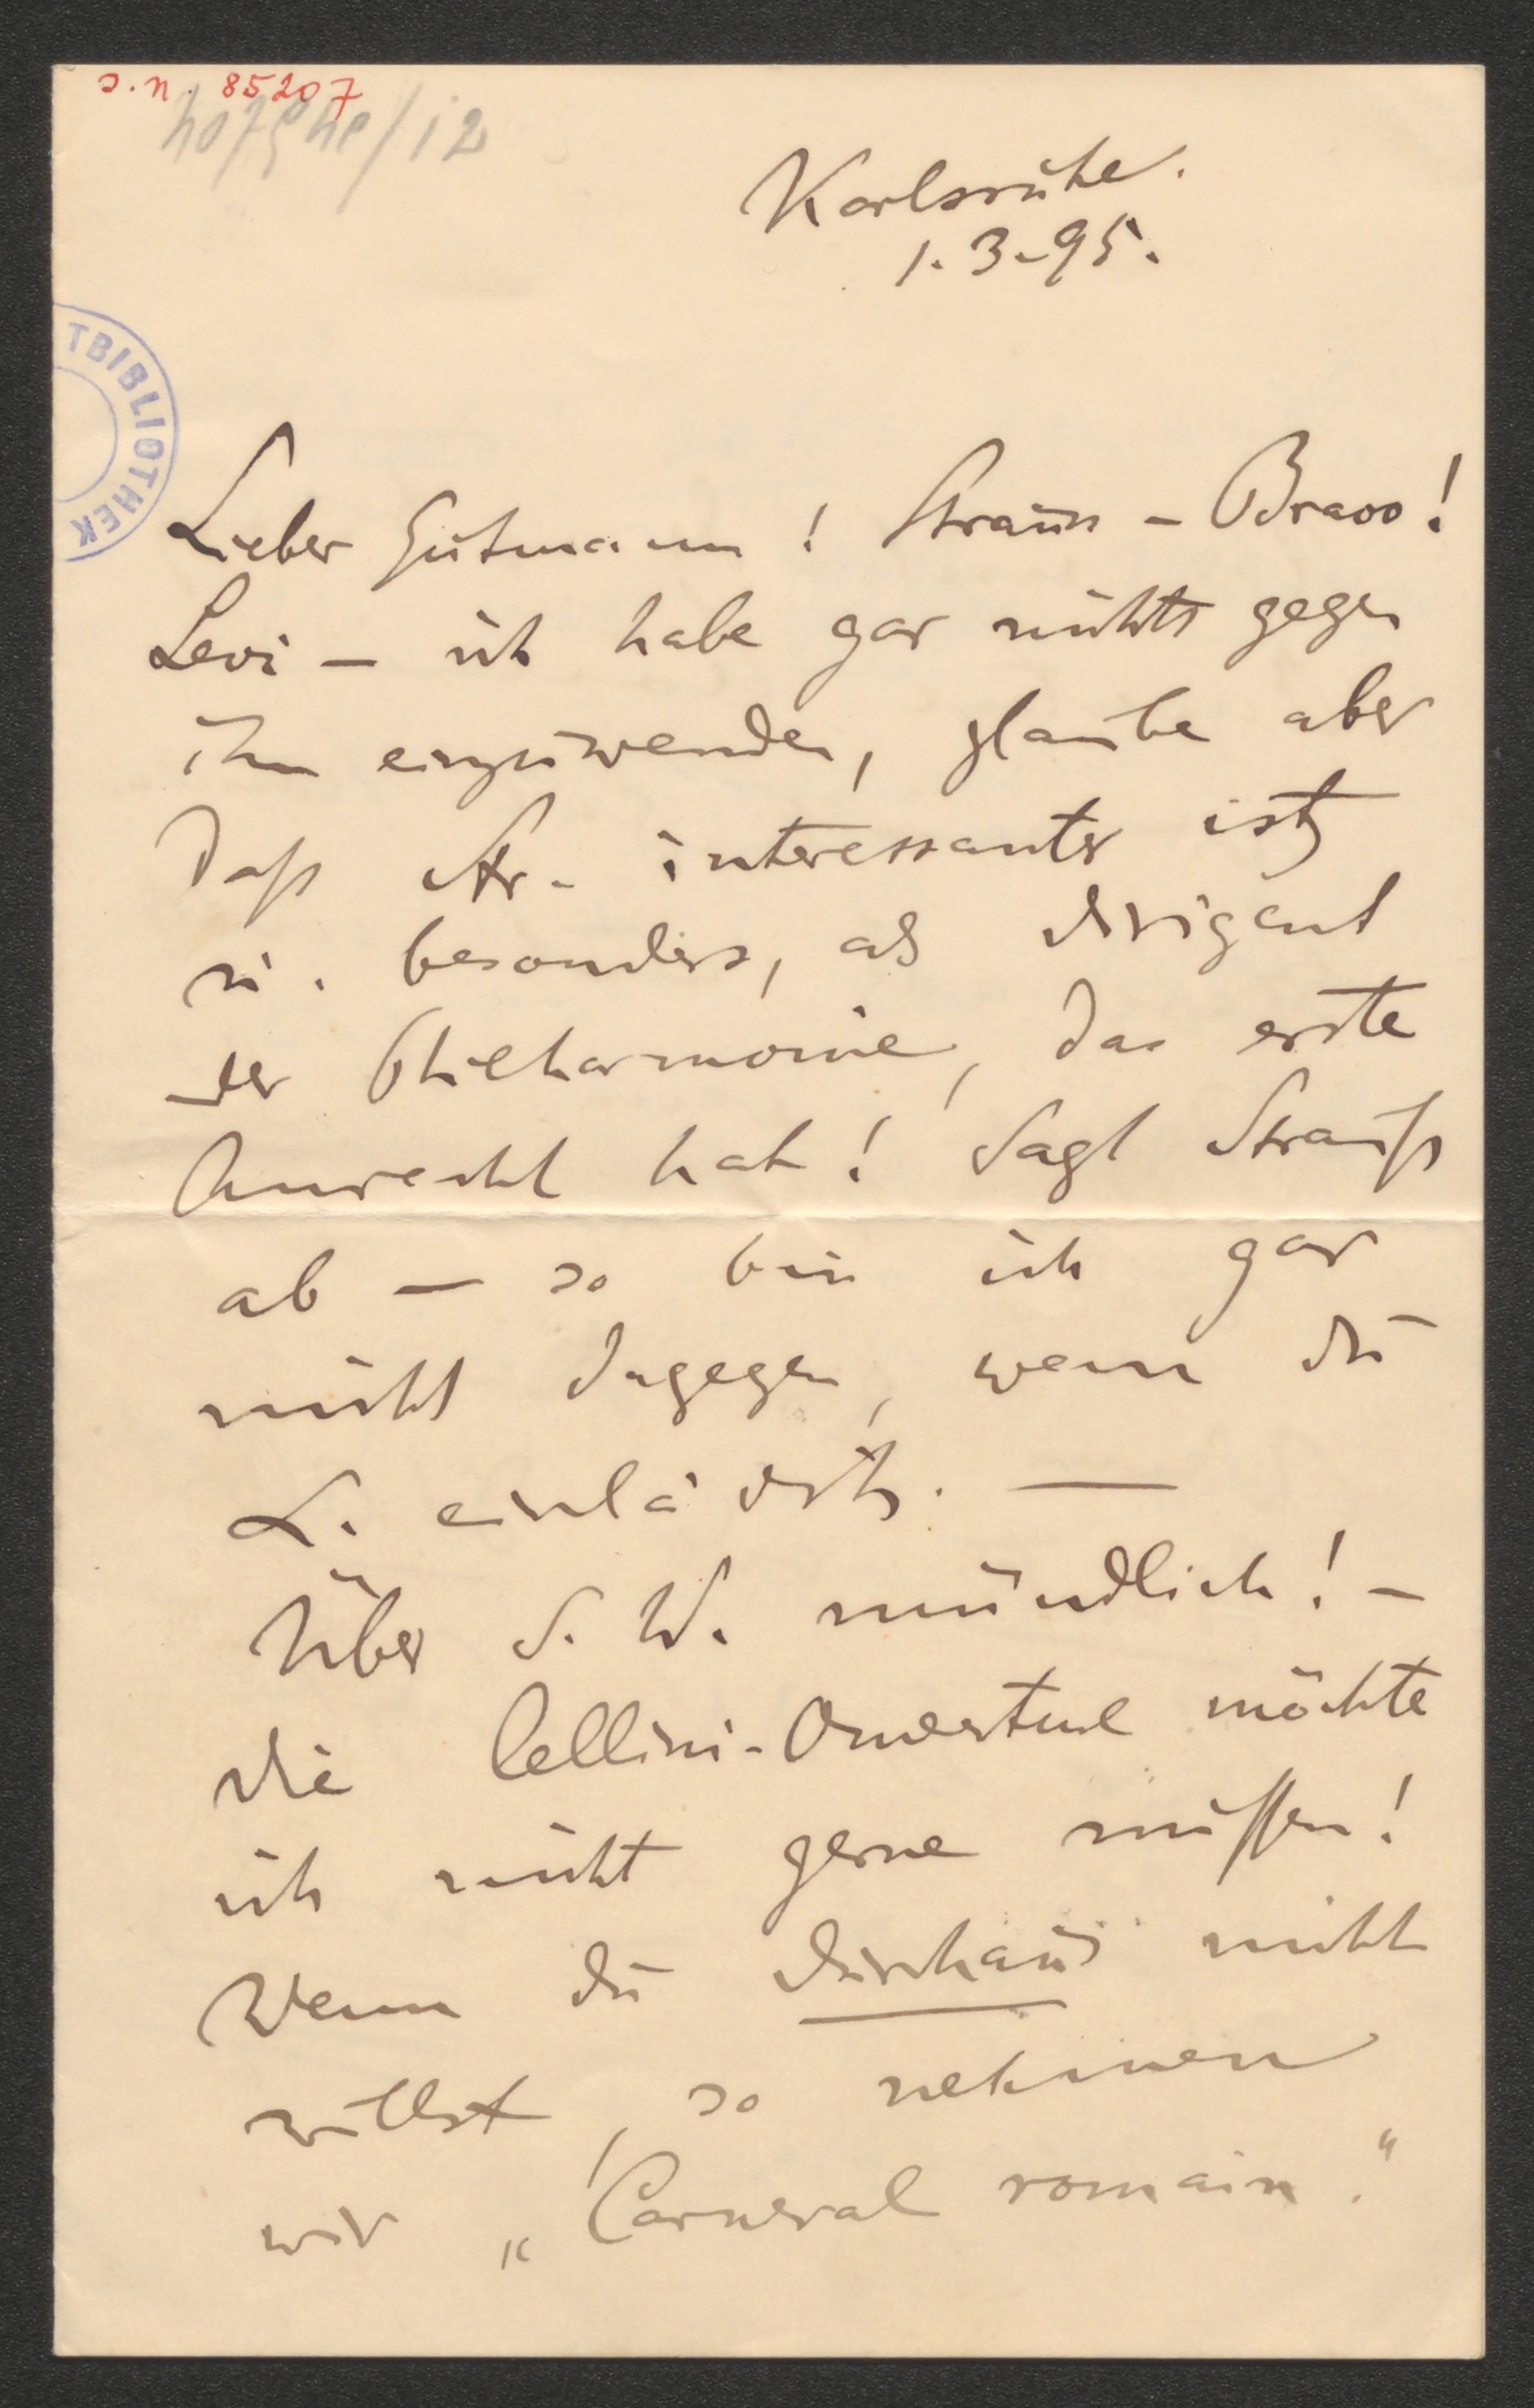 J. N. 85207
Karlsruhe.
1. 3. 95.
TBIBLIOTHEK
Lieber Gutmann! Strauss – Bravo!
Levi – ich habe gar nichts gegen
ihn einzuwenden, glaube aber
daß Str. interessanter ist,
u. besonders, als Dirigent
der Philharmonie, das erste
Anrecht hat! Sagt Strauß
ab – so bin ich gar
nicht dagegen, wenn du
L. einlädst. —
Über S. W. mündlich! –
Die Cellini-Ouverture möchte
ich nicht gerne missen!
Wenn du durchaus nicht
willst, so nehmen
wir „Carneval romain.“